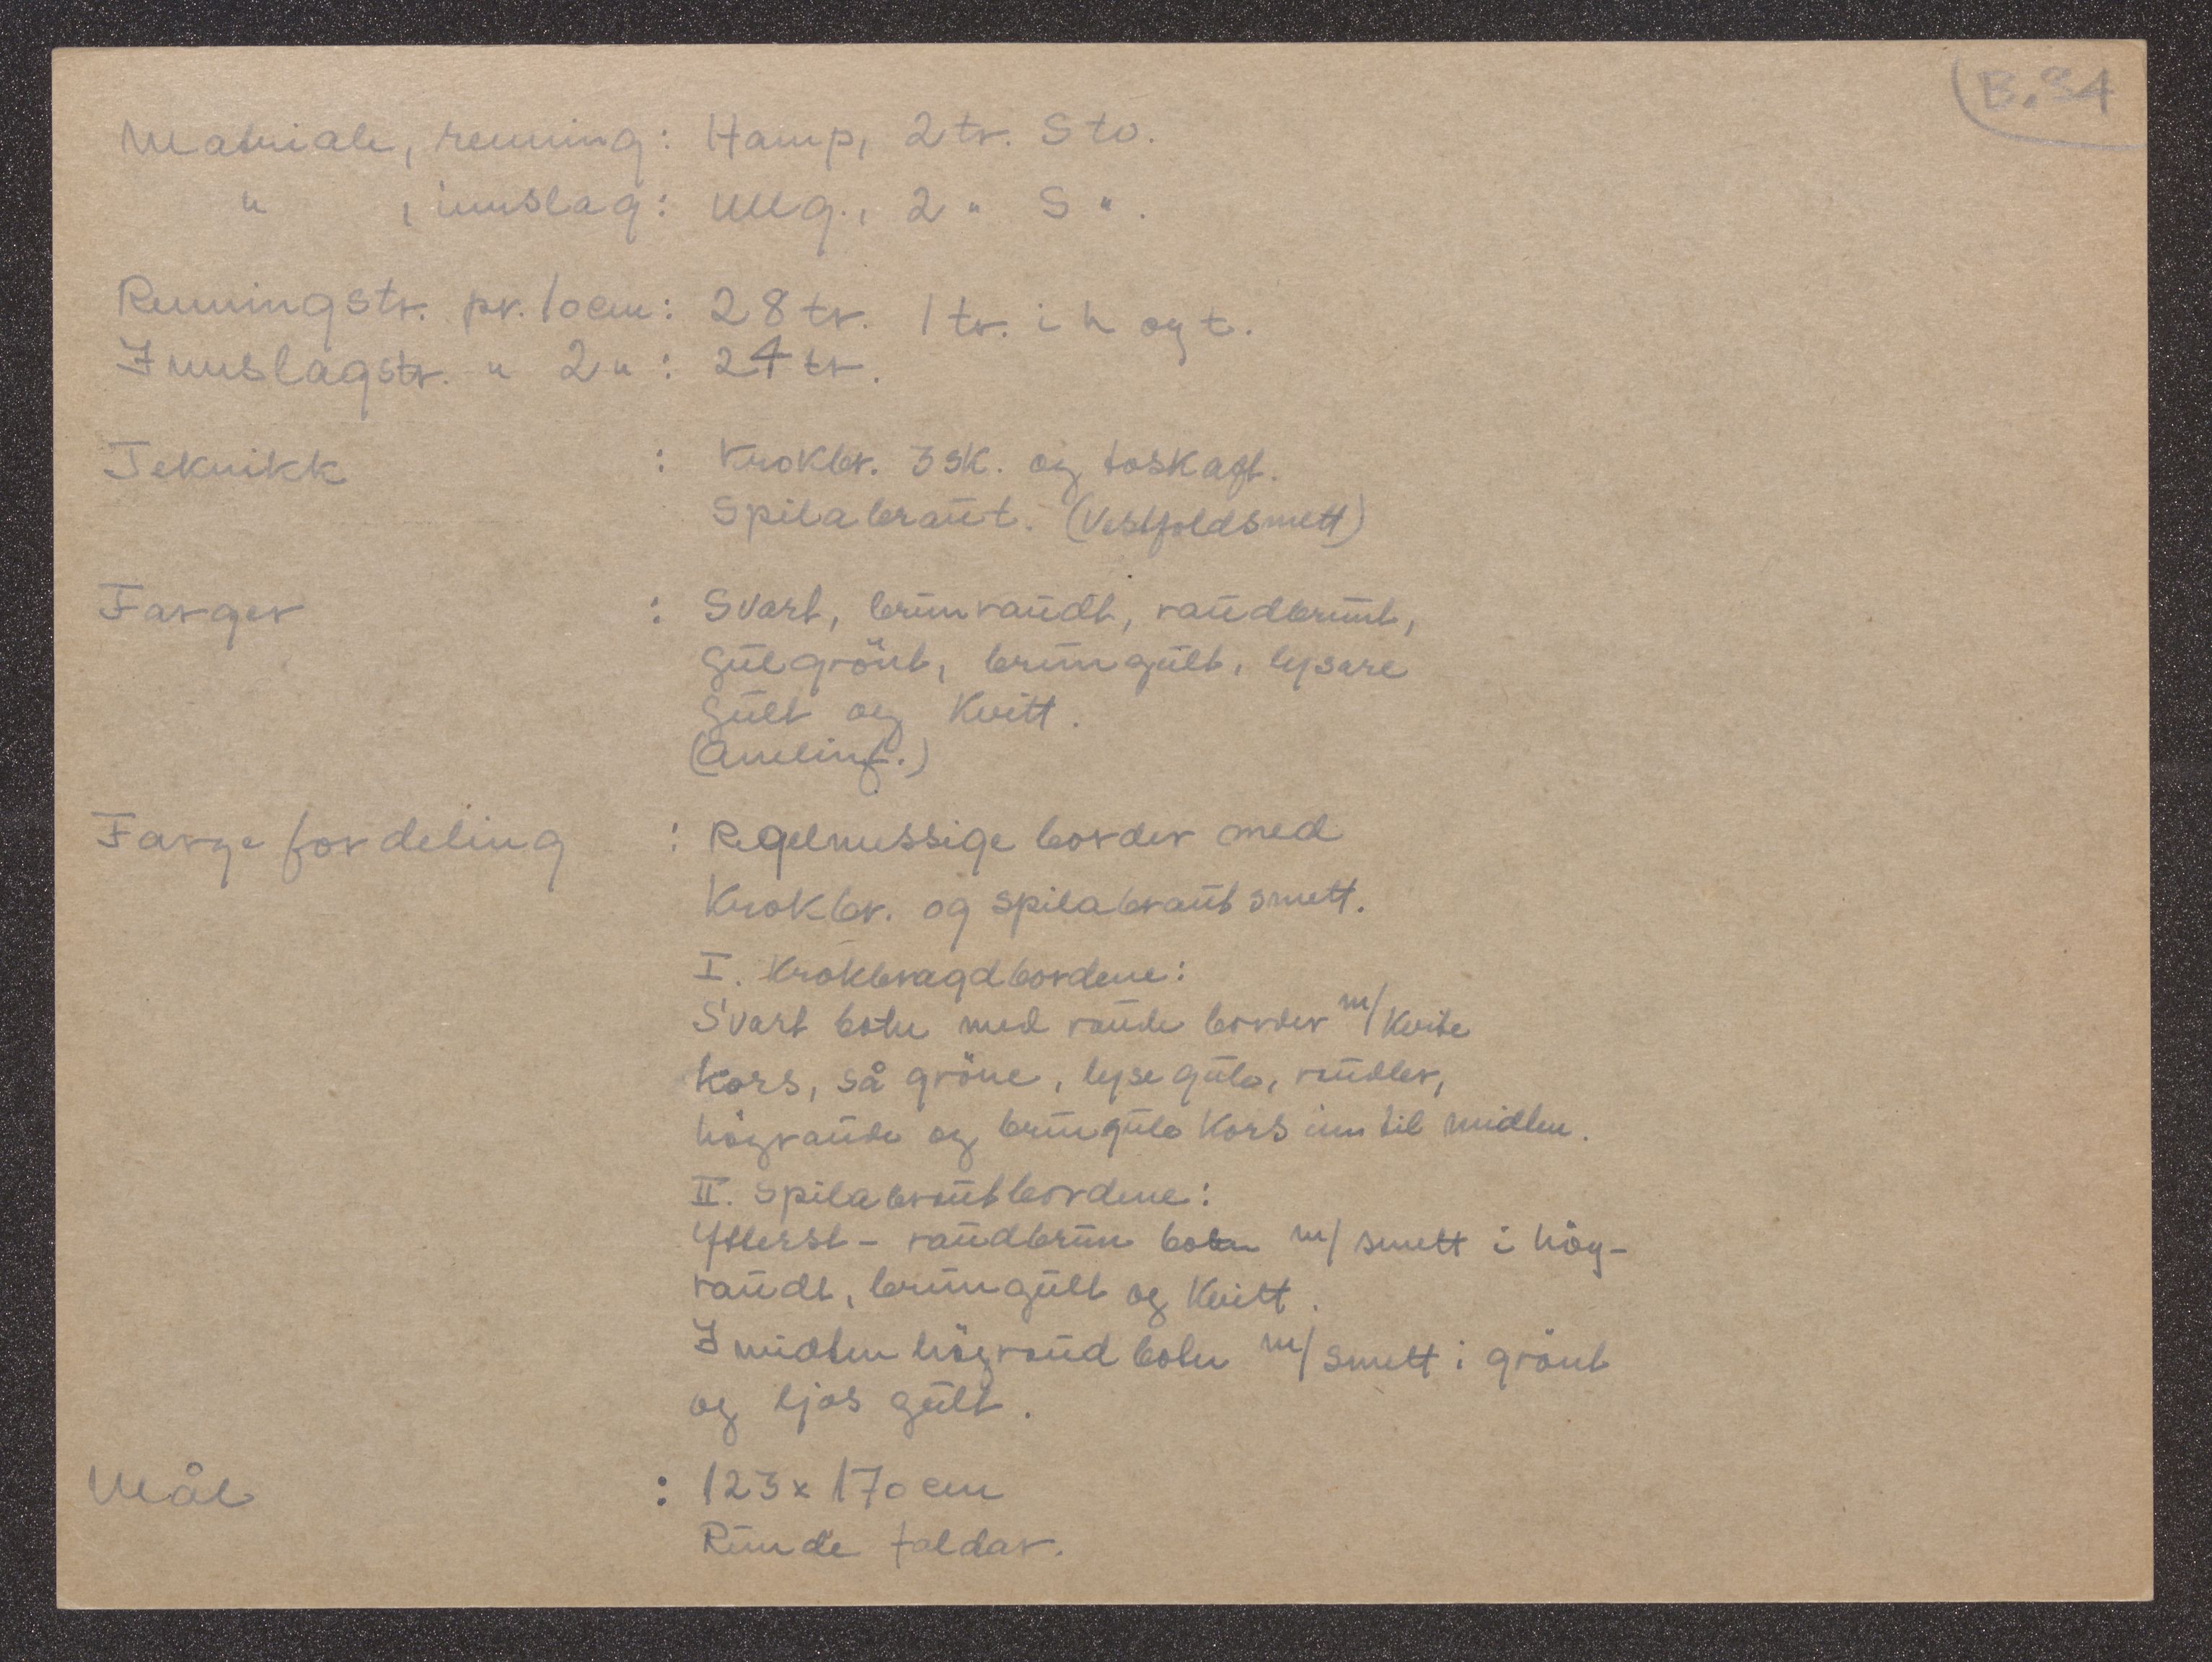 B.94
Matriale, renning: Hamp, 2 tr. S to.
" , innslag: Ullg., 2 " S ".
Renningstr. pr. 10 cm: 28 tr. 1 tr. i h og t.
Innslagstr. " 2 " : 24 tr.
Teknikk : Krokbr. 3 sk. og toskaft.
Spilabraut. (Vestfoldsmett)
Farger : Svart, brunraudt, raudbrunt,
gulgrönt, brungult, lysare
gult og Kvitt.
(Anelinf.)
Farge fordeling : Regelmessige border med
Krokbr. og spilabrautsmett.
I. Krokbragdbordene:
Svart botn med raude border m/ Kvite
kors, så gröne, lyse gule,
högraude og brungule Kors inn til midten.
II. Spilabrautbordene:
Ytterst - raudbrun botn m/ smett i hög-
raudt, brungult og Kvitt.
I midten högraud botn m/ smett i grönt
og ljos gult.
Mål : 123 x 170 cm
Runde faldar.